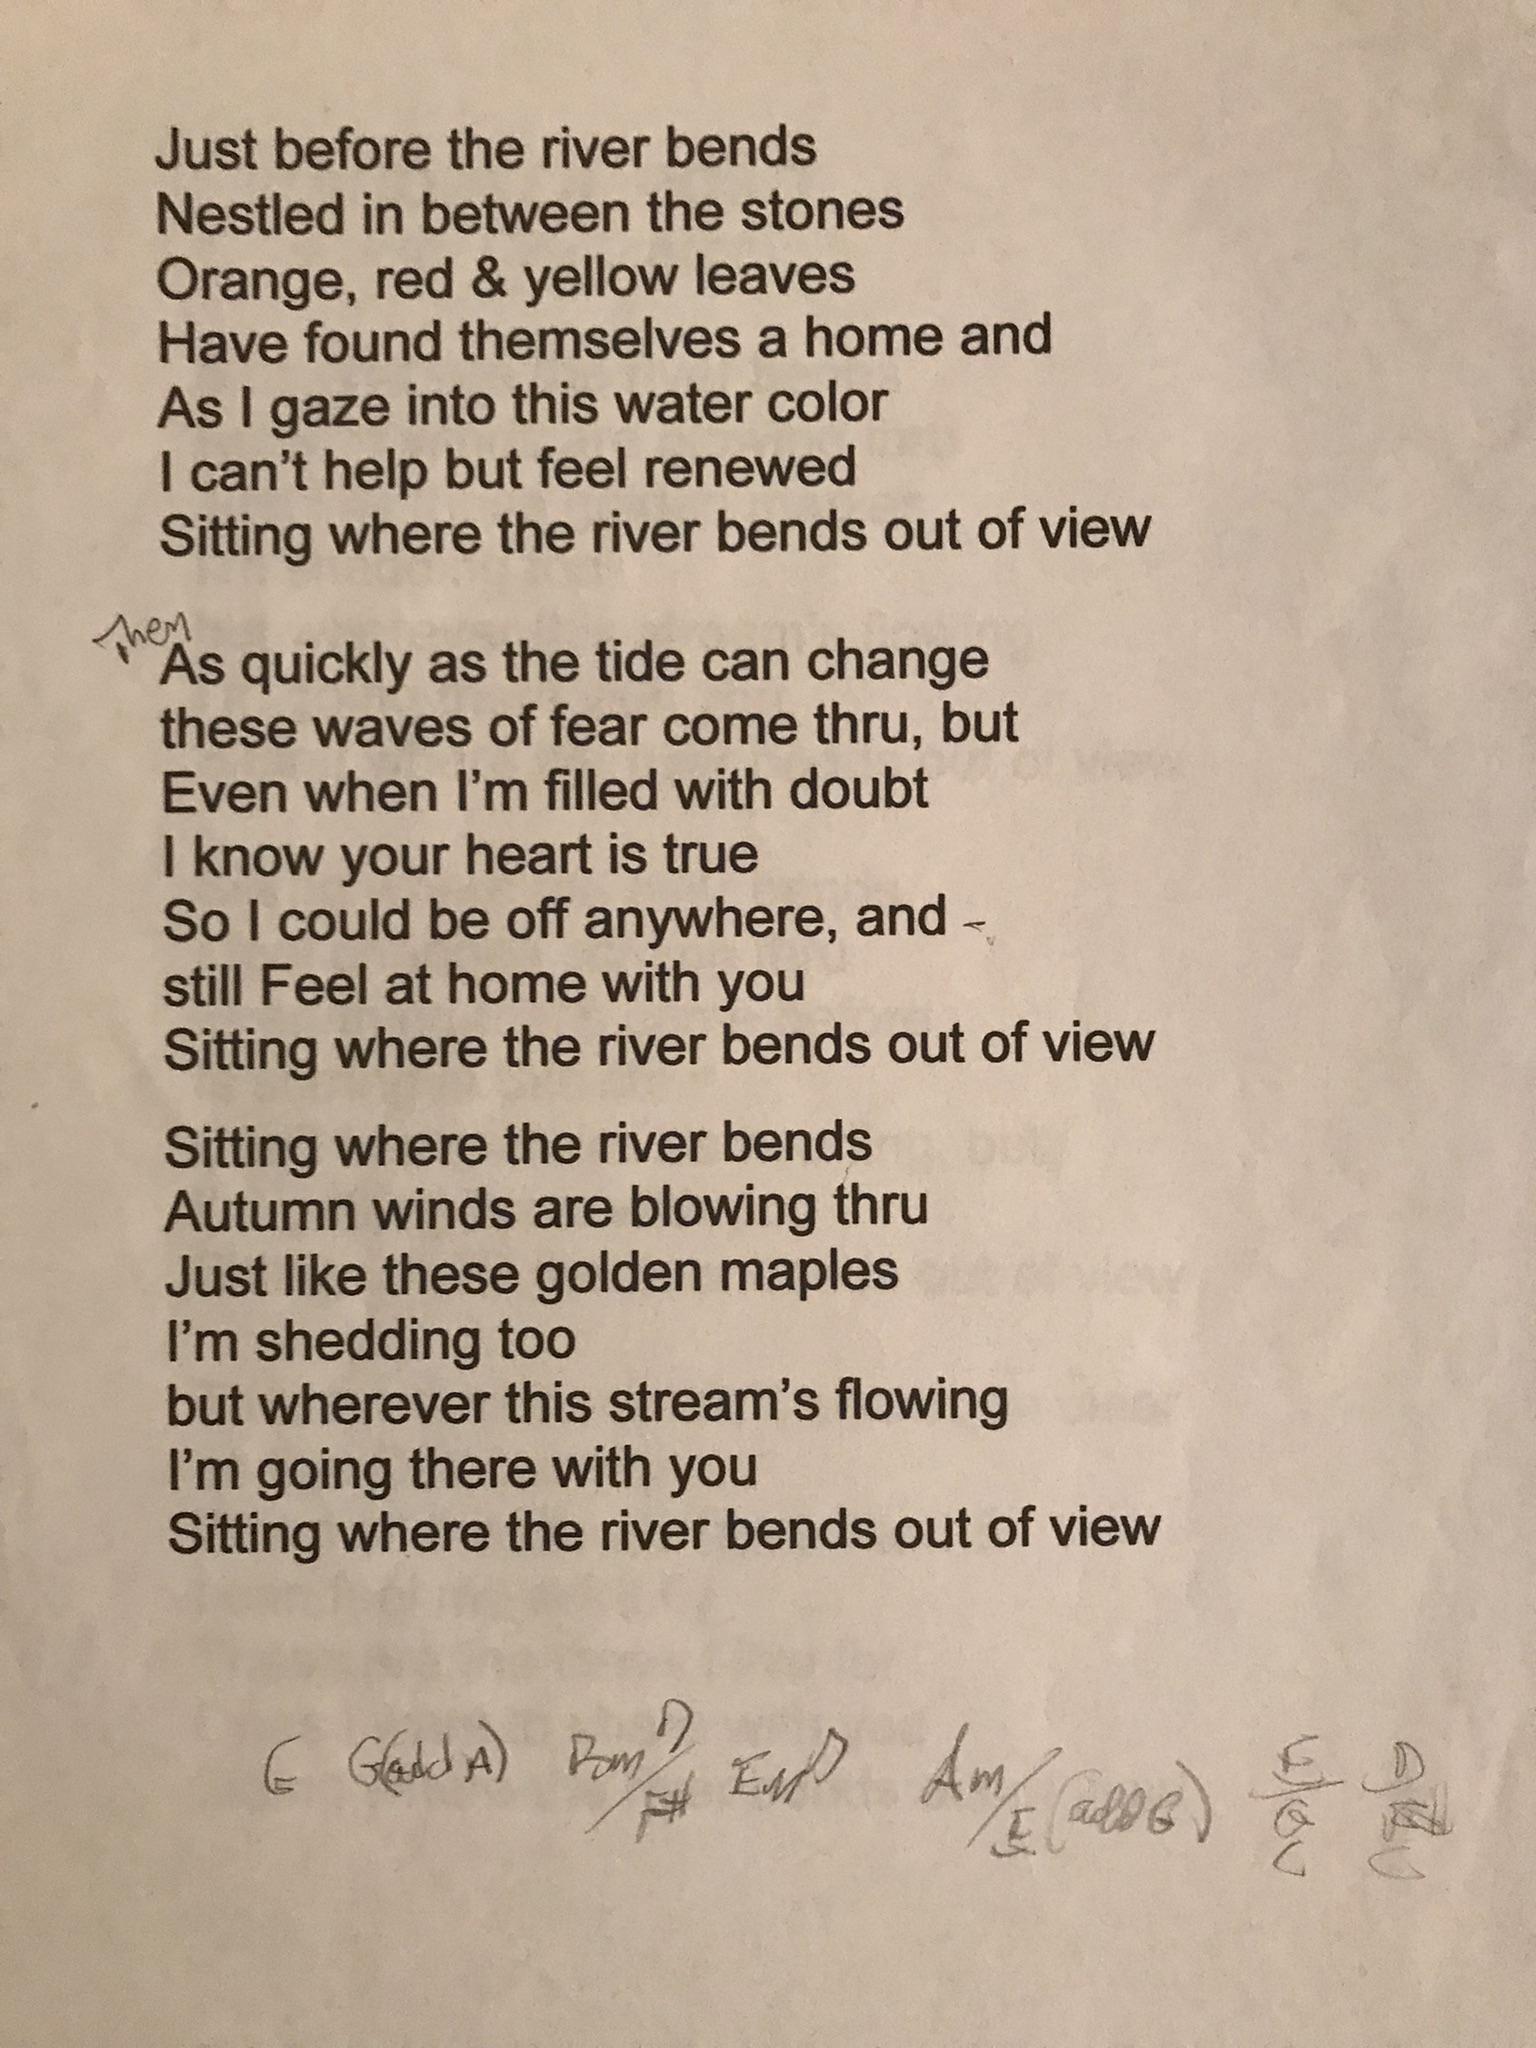 Just before the river bends
Nestled in between the stones
Orange, red & yellow leaves
Have found themselves a home and
As I gaze into this water color
I can't help but feel renewed
Sitting where the river bends out of view
Then
As quickly as the tide can change
these waves of fear come thru, but
Even when I'm filled with doubt
I know your heart is true
So I could be off anywhere, and
still Feel at home with you
Sitting where the river bends out of view
Sitting where the river bends
Autumn winds are blowing thru
Just like these golden maples
I'm shedding too
but wherever this stream's flowing
I'm going there with you
Sitting where the river bends out of view
G(add A) Am/E